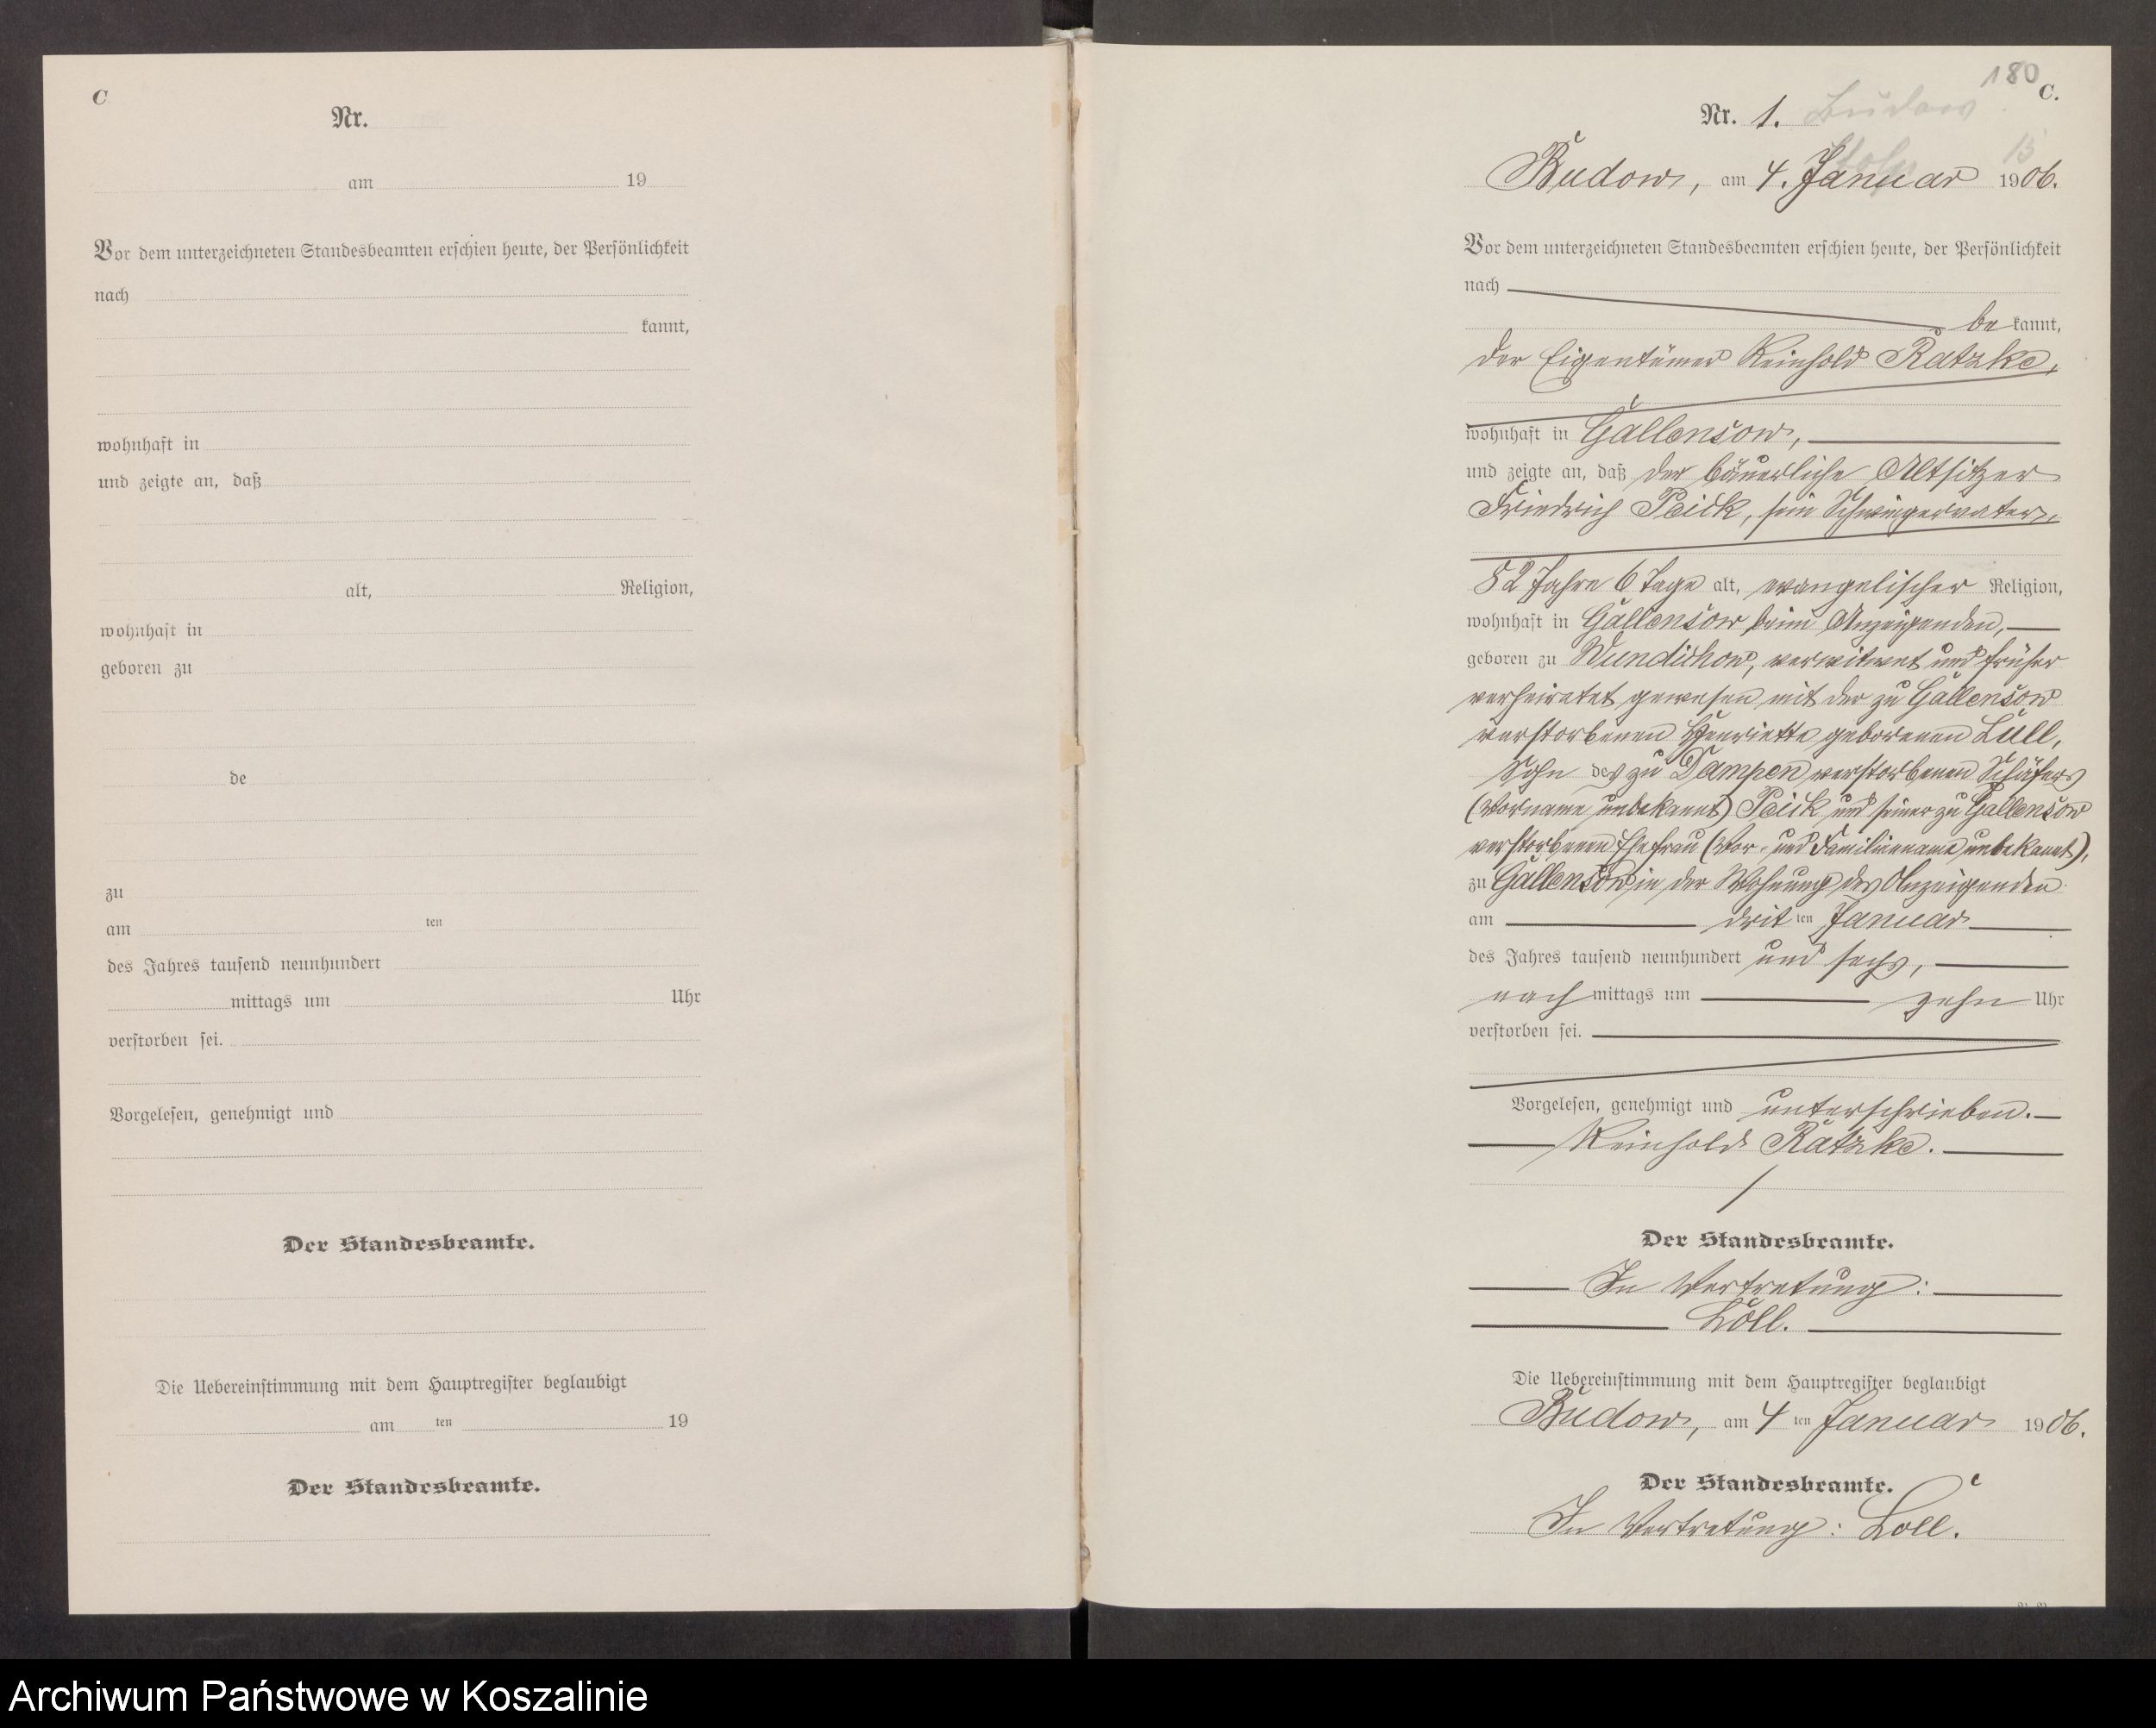 C
Nr.
am 19
Vor dem unterzeichneten Standesbeamten erschien heute, der Persönlichkeit
nach
kannt,
wohnhaft in
und zeigte an, daß
alt, Religion,
wohnhaft in
geboren zu
de
zu
am ten
des Jahres tausend neunhundert
mittags um Uhr
verstorben sei.
Vorgelesen, genehmigt und
Der Standesbeamte.
Die Uebereinstimmung mit dem Hauptregister beglaubigt
am ten 19
Der Standesbeamte.
180
C.
Nr. 1. Budow
Budow, am 4. Januar 1906.
Vor dem unterzeichneten Standesbeamten erschien heute, der Persönlichkeit
nach
be kannt,
der Eigentümer Reinhold Ratzke,
wohnhaft in Gallensow,
und zeigte an, daß der bäuerliche Altsitzer
Friedrich Peick, sein Schwiegervater,
82 Jahre 6 Tage alt, evangelischer Religion,
wohnhaft in Gallensow beim Anzeigenden,
geboren zu Wundichow, verwitwet und früher
verheiratet gewesen mit der zu Gallensow
verstorbenen Henriette geborenen Lüll,
Sohn des zu Dampen verstorbenen Schäfers
(Vorname unbekannt) Peick und seiner zu Gallensow
verstorbenen Ehefrau (Vor- und Familienname unbekannt),
zu Gallensow in der Wohnung des Anzeigenden
am drit ten Januar
des Jahres tausend neunhundert und sechs,
nach mittags um zehn Uhr
verstorben sei.
Vorgelesen, genehmigt und unterschrieben.
Reinhold Ratzke.
Der Standesbeamte.
In Vertretung:
Löll.
Die Uebereinstimmung mit dem Hauptregister beglaubigt
Budow, am 4 ten Januar 1906.
Der Standesbeamte.
In Vertretung: Löll.
Archiwum Państwowe w Koszalinie